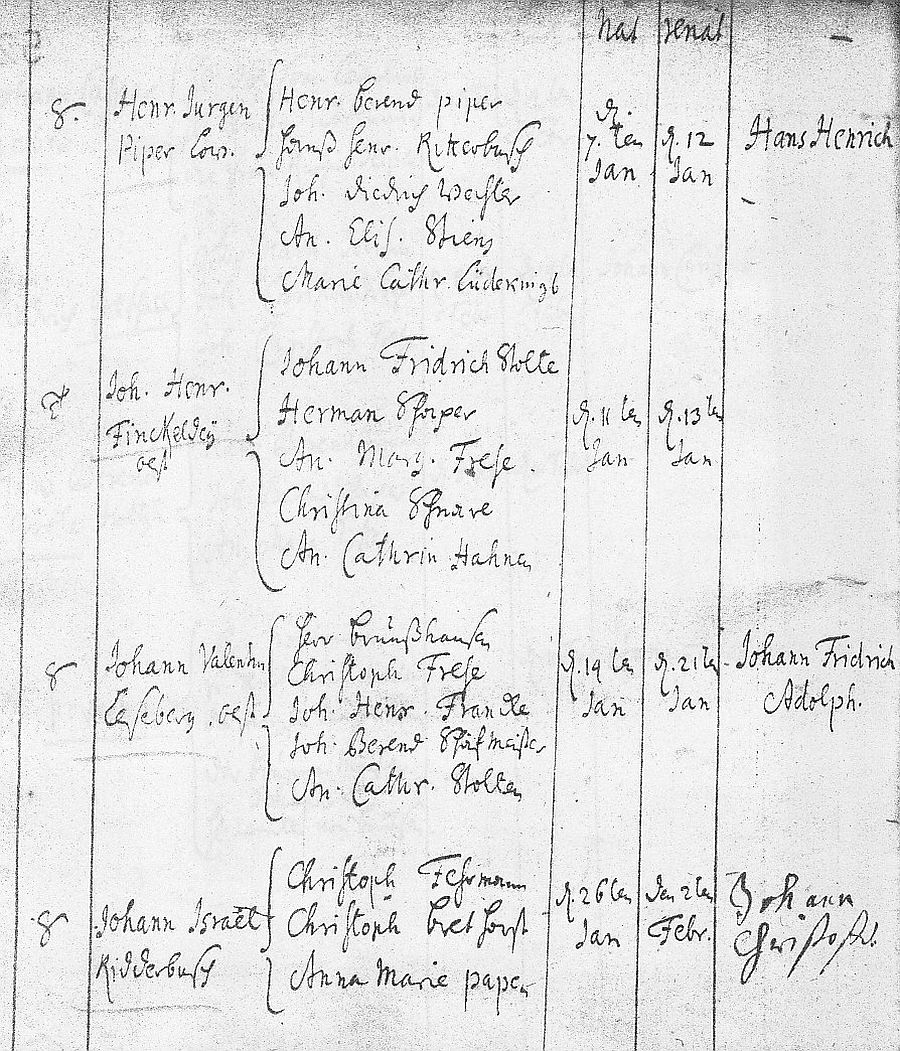 Nat renat
Henr. Jurgen
Piper Cow.
Henr. berend piper
Hanß Henr. Ritterbusch
Joh. Diedrich Wechsler
An. Elis. Stiens
Marie Cathr.
d. 7. ten Jan
d. 12 Jan
Hans Henrich
Joh. Henr.
Finckeldey
oest
Johann Fridrich Stolte
Herman Schaper
An. Marg. Frese.
Christina Schnare
An. Cathrin Hahnen
d. 11 ten Jan
d. 13 ten Jan
Johann Valentin
Leseberg. oest
Herr brünßhausen
Christoph Frese
Joh. Henr. Francke
Joh. Berend Schäfmeister
An. Cathr. Stolten
d. 19 ten Jan
d. 21 ten Jan
Johann Fridrich
Adolph.
Johann Israël
Ridderbusch
Christoph Fehrmann
Christoph brethorst
Anna Marie papen
d. 26 ten Jan
den 2 ten Febr.
Johann
Christoph.